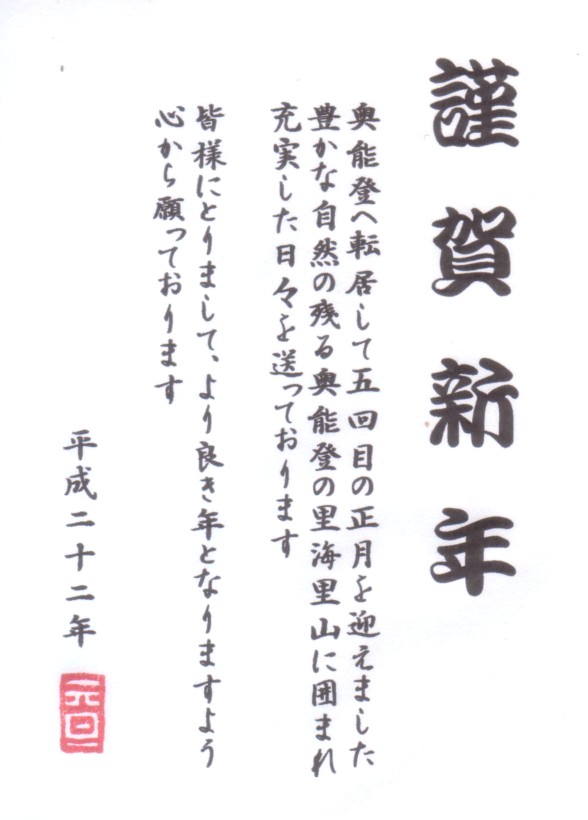 謹賀新年
奥能登へ転居して五回目の正月を迎えました
豊かな自然の残る奥能登の里海里山に囲まれ
充実した日々を送っております
皆様にとりまして、より良き年となりますよう
心から願っております
平成二十二年
元旦